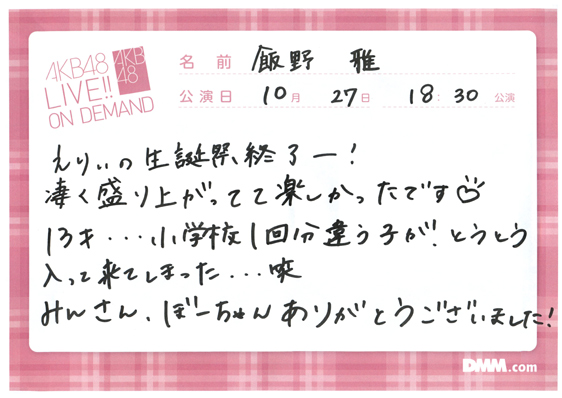 AKB48
LIVE!!
ON DEMAND
AKB
48
名前 飯野 雅
公演日 10月 27日 18:30 公演
えりぃの生誕祭、終了ー!
凄く盛り上がってて楽しかったです
13才...小学校1回分違う子が、とうとう
入って来てしまった...笑
みんさん、ぼーちゃんありがとうございました!
DMM.com